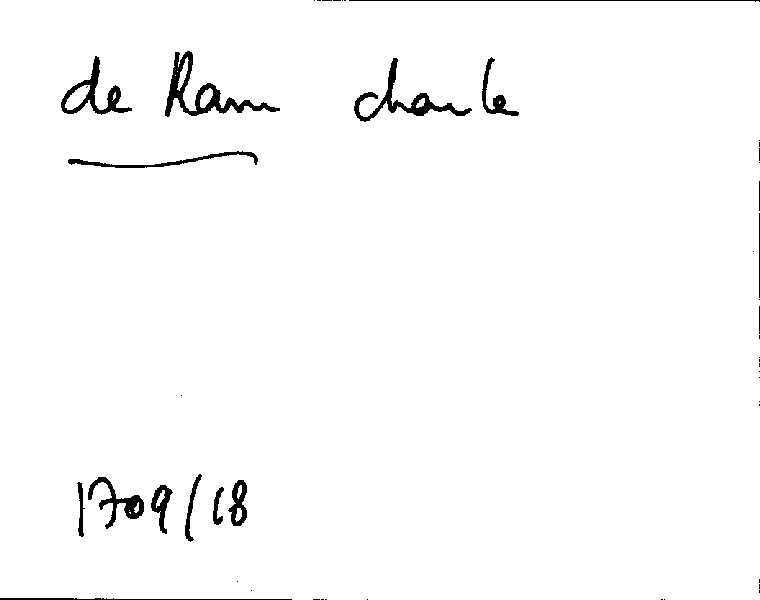 de Ram charle
1709/18